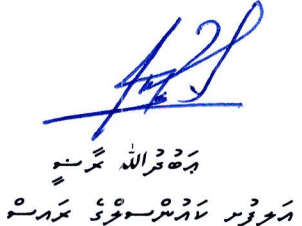 ޢަބްދުﷲ ރާޟީ
އަލިފުށި ކައުންސިލްގެ ރައީސް